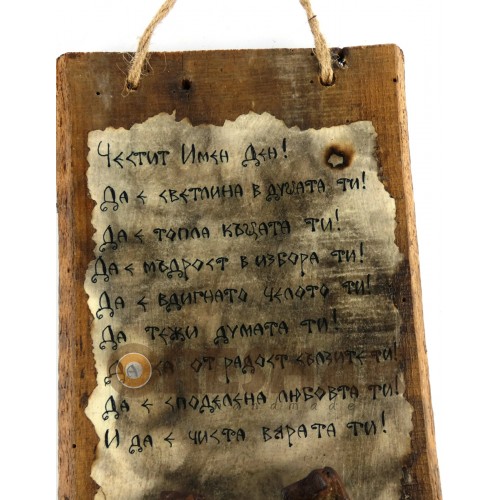 Честит Имен Ден!
Да е светлина в душата ти!
Да е топла къщата ти!
Да е мъдрост в извора ти!
Да е вдигнато челото ти!
Да тежи думата ти!
от радост сълзите ти!
Да е споделена любовта ти!
И да е чиста вярата ти!